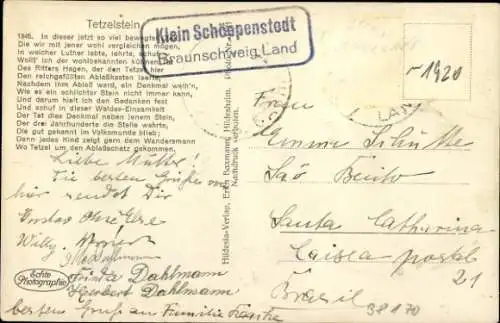 Tetzelstein
1845. In dieser jetzt so viel bewegten
Die wir mit jener wohl vergleichen mögen,
In welcher Luther lebte, lehrte, schuf
Wollt' ich der wohlbekannten
Des Ritters Hagen, der den Tetzel hier
Den reichgefüllten Ablaßkasten leerte,
Nachdem ihm Ablaß ward, ein Denkmal weih'n,
Wie es ein schlichter Stein nicht immer kann,
Und darum hielt ich den Gedanken fest
Und schuf in dieser Waldes-Einsamkeit
Der Tat dies Denkmal neben jenem Stein,
Der drei Jahrhunderte die Stelle wahrte,
Die gut gekannt im Volksmunde blieb;
Denn jedes Kind zeigt gern dem Wandersmann
Wo Tetzel um den Ablaßschatz gekommen.
Klein Schöppenstedt
Braunschweig Land
Hildesia-Verlag, Erich Baxmann, Hildesheim.
Nachdruck verboten.
Liebe Mutter!
Die besten Grüße von
hier sendet Dir
Willy
Frieda Dahlmann
Herbert Dahlmann
besten Gruß an Familie
Echte
Photographie
- 1920
LAND
Frau
Emma Schütte
São Bento
Santa Catharina
Caixa postal
21
Brasil
38170